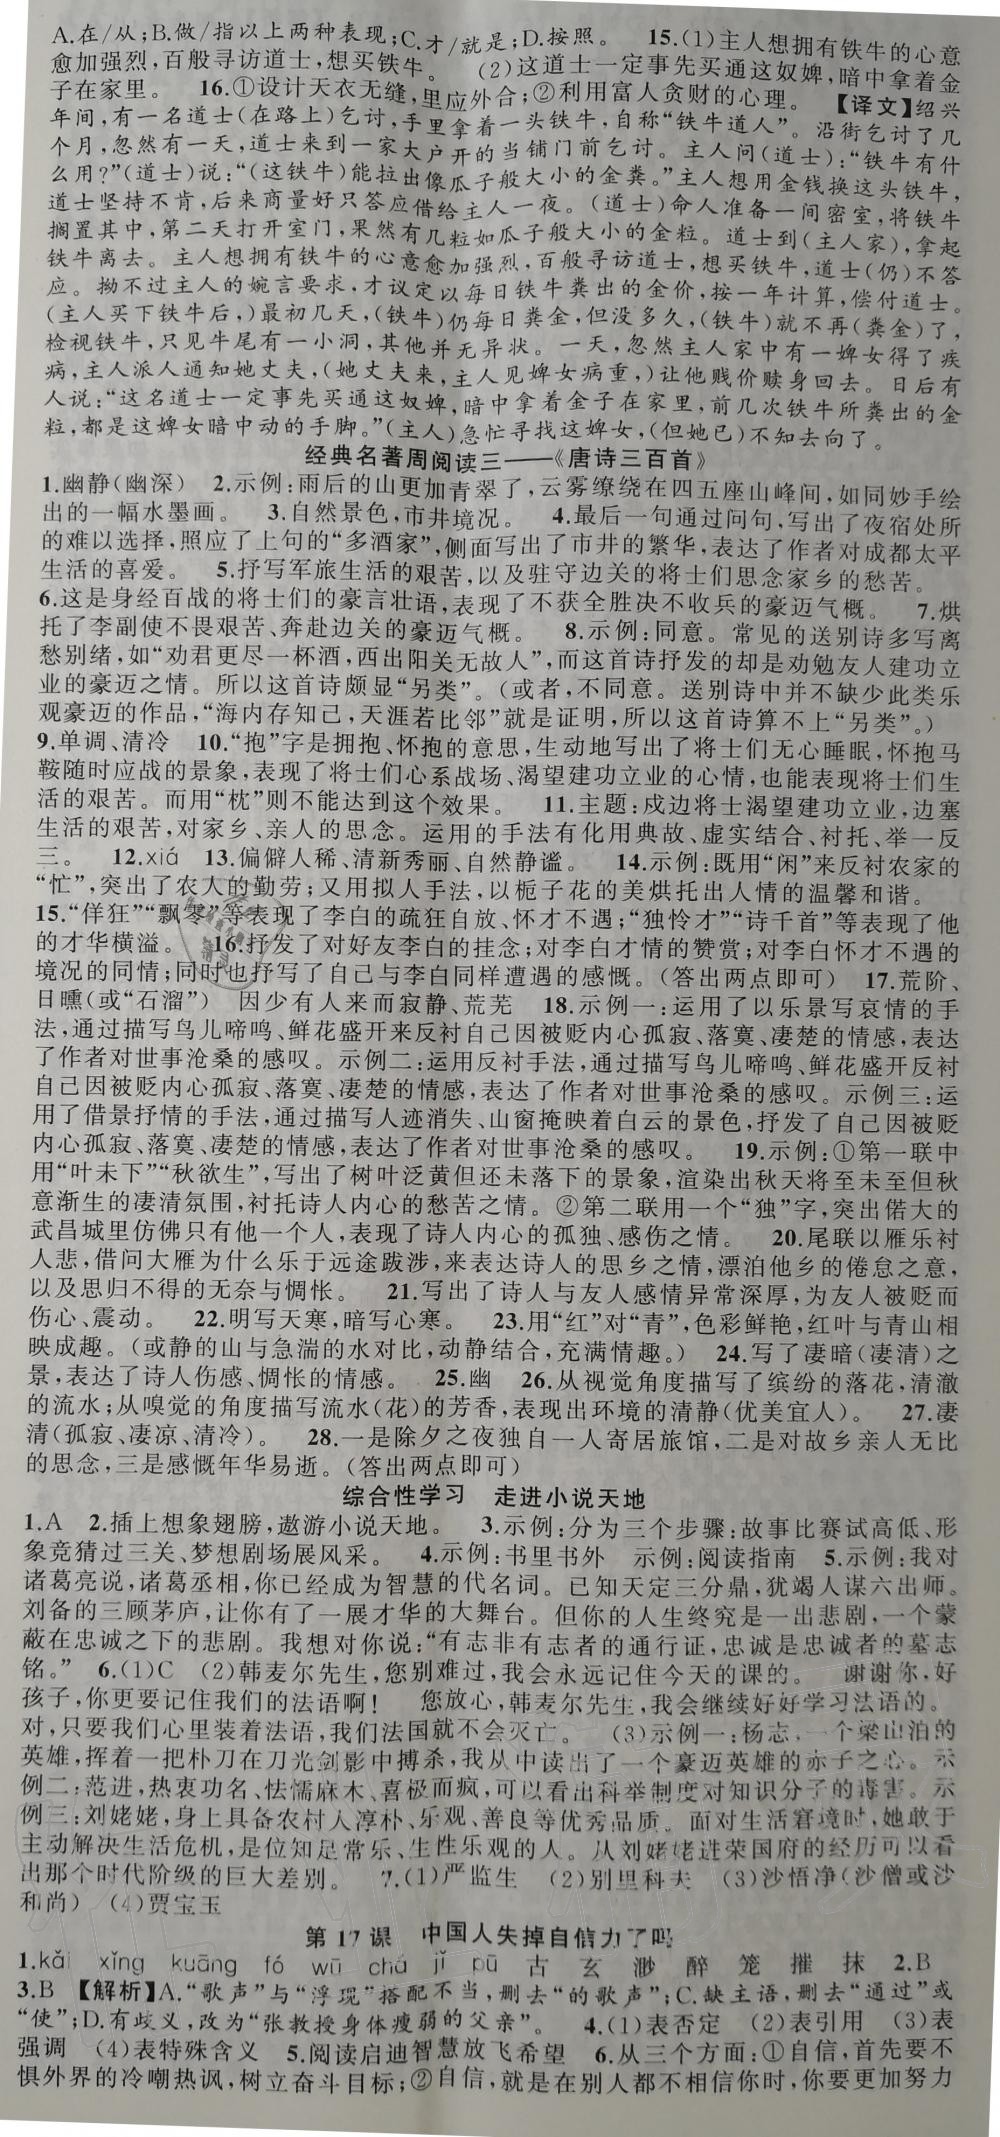 A.在/从；B.做/指以上两种表现；C.才/就是；D.按照。　15.(1)主人想拥有铁牛的心意
愈加强烈，百般寻访道士，想买铁牛。　(2)这道士一定事先买通这奴婢，暗中拿着金
子在家里。　16.①设计天衣无缝，里应外合；②利用富人贪财的心理。　【译文】绍兴
年间，有一名道士(在路上)乞讨，手里拿着一头铁牛，自称“铁牛道人”。沿街乞讨了几
个月，忽然有一天，道士来到一家大户开的当铺门前乞讨。主人问(道士)：“铁牛有什
么用？”(道士)说：“(这铁牛)能拉出像瓜子般大小的金粪。”主人想用金钱换这头铁牛，
道士坚持不肯，后来商量好只答应借给主人一夜。(道士)命人准备一间密室，将铁牛
搁置其中，第二天打开室门，果然有几粒如瓜子般大小的金粒。道士到(主人家)，拿起
铁牛离去。主人想拥有铁牛的心意愈加强烈，百般寻访道士，想买铁牛，道士(仍)不答
应。拗不过主人的婉言要求，才议定以每日铁牛粪出的金价，按一年计算，偿付道士。
(主人买下铁牛后，)最初几天，(铁牛)仍每日粪金，但没多久，(铁牛)就不再(粪金)了，
检视铁牛，只见牛尾有一小洞，其他并无异状。一天，忽然主人家中有一婢女得了疾
病，主人派人通知她丈夫，(她丈夫来，主人见婢女病重，)让他贱价赎身回去。日后有
人说：“这名道士一定事先买通这奴婢，暗中拿着金子在家里，前几次铁牛所粪出的金
粒，都是这婢女暗中动的手脚。”(主人)急忙寻找这婢女，(但她已)不知去向了。
经典名著周阅读三——《唐诗三百首》
1.幽静(幽深)　2.示例：雨后的山更加青翠了，云雾缭绕在四五座山峰间，如同妙手绘
出的一幅水墨画。　3.自然景色，市井境况。　4.最后一句通过问句，写出了夜宿处所
的难以选择，照应了上句的“多酒家”，侧面写出了市井的繁华，表达了作者对成都太平
生活的喜爱。　5.抒写军旅生活的艰苦，以及驻守边关的将士们思念家乡的愁苦。
6.这是身经百战的将士们的豪言壮语，表现了不获全胜决不收兵的豪迈气概。　7.烘
托了李副使不畏艰苦、奔赴边关的豪迈气概。　8.示例：同意。常见的送别诗多写离
愁别绪，如“劝君更尽一杯酒，西出阳关无故人”，而这首诗抒发的却是劝勉友人建功立
业的豪迈之情。所以这首诗颇显“另类”。(或者，不同意。送别诗中并不缺少此类乐
观豪迈的作品，“海内存知己，天涯若比邻”就是证明，所以这首诗算不上“另类”。)
9.单调、清冷　10.“抱”字是拥抱、怀抱的意思，生动地写出了将士们无心睡眠，怀抱马
鞍随时应战的景象，表现了将士们心系战场、渴望建功立业的心情，也能表现将士们生
活的艰苦。而用“枕”则不能达到这个效果。　11.主题：戍边将士渴望建功立业，边塞
生活的艰苦，对家乡、亲人的思念。运用的手法有化用典故、虚实结合、衬托、举一反
三。　12.xiá　13.偏僻人稀、清新秀丽、自然静谧。　14.示例：既用“闲”来反衬农家的
“忙”，突出了农人的勤劳；又用拟人手法，以栀子花的美烘托出人情的温馨和谐。
15.“佯狂”“飘零”等表现了李白的疏狂自放、怀才不遇；“独怜才”“诗千首”等表现了他
的才华横溢。　16.抒发了对好友李白的挂念；对李白才情的赞赏；对李白怀才不遇的
境况的同情；同时也抒写了自己与李白同样遭遇的感慨。(答出两点即可)　17.荒阶、
日曛(或“石溜”)　因少有人来而寂静、荒芜　18.示例一：运用了以乐景写哀情的手
法，通过描写鸟儿啼鸣、鲜花盛开来反衬自己因被贬内心孤寂、落寞、凄楚的情感，表达
了作者对世事沧桑的感叹。示例二：运用反衬手法，通过描写鸟儿啼鸣、鲜花盛开反衬
自己因被贬内心孤寂、落寞、凄楚的情感，表达了作者对世事沧桑的感叹。示例三：运
用了借景抒情的手法，通过描写人迹消失、山窗掩映着白云的景色，抒发了自己因被贬
内心孤寂、落寞、凄楚的情感，表达了作者对世事沧桑的感叹。　19.示例：①第一联中
用“叶未下”“秋欲生”，写出了树叶泛黄但还未落下的景象，渲染出秋天将至未至但秋
意渐生的凄清氛围，衬托诗人内心的愁苦之情。②第二联用一个“独”字，突出偌大的
武昌城里仿佛只有他一个人，表现了诗人内心的孤独、感伤之情。　20.尾联以雁乐衬
人悲，借问大雁为什么乐于远途跋涉，来表达诗人的思乡之情，漂泊他乡的倦怠之意，
以及思归不得的无奈与惆怅。　21.写出了诗人与友人感情异常深厚，为友人被贬而
伤心、震动。　22.明写天寒，暗写心寒。　23.用“红”对“青”，色彩鲜艳，红叶与青山相
映成趣。(或静的山与急湍的水对比，动静结合，充满情趣。)　24.写了凄暗(凄清)之
景，表达了诗人伤感、惆怅的情感。　25.幽　26.从视觉角度描写了缤纷的落花，清澈
的流水；从嗅觉的角度描写流水(花)的芳香，表现出环境的清静(优美宜人)。　27.凄
清(孤寂、凄凉、清冷)。　28.一是除夕之夜独自一人寄居旅馆，二是对故乡亲人无比
的思念，三是感慨年华易逝。(答出两点即可)
综合性学习　走进小说天地
1.A　2.插上想象翅膀，遨游小说天地。　3.示例：分为三个步骤：故事比赛试高低、形
象竞猜过三关、梦想剧场展风采。　4.示例：书里书外　示例：阅读指南　5.示例：我对
诸葛亮说，诸葛丞相，你已经成为智慧的代名词。已知天定三分鼎，犹竭人谋六出师。
刘备的三顾茅庐，让你有了一展才华的大舞台。但你的人生终究是一出悲剧，一个蒙
蔽在忠诚之下的悲剧。我想对你说：“有志非有志者的通行证，忠诚是忠诚者的墓志
铭。”　6.(1)C　(2)韩麦尔先生，您别难过，我会永远记住今天的课的。　谢谢你，好
孩子，你更要记住我们的法语啊！　您放心，韩麦尔先生，我会继续好好学习法语的。
对，只要我们心里装着法语，我们法国就不会灭亡。　(3)示例一：杨志，一个梁山泊的
英雄，挥着一把朴刀在刀光剑影中搏杀，我从中读出了一个豪迈英雄的赤子之心。示
例二：范进，热衷功名、怯懦麻木、喜极而疯，可以看出科举制度对知识分子的毒害。示
例三：刘姥姥，身上具备农村人淳朴、乐观、善良等优秀品质。面对生活窘境时，她敢于
主动解决生活危机，是位知足常乐、生性乐观的人。从刘姥姥进荣国府的经历可以看
出那个时代阶级的巨大差别。　7.(1)严监生　(2)别里科夫　(3)沙悟净(沙僧或沙
和尚)　(4)贾宝玉
第 17 课　中国人失掉自信力了吗
1.kǎi　xǐng　kuāng　fó　wū　chá　jǐ　pū　古　玄　渺　醉　笼　摧　抹　2.B
3.B　【解析】A.“歌声”与“浮现”搭配不当，删去“的歌声”；C.缺主语，删去“通过”或
“使”；D.有歧义，改为“张教授身体瘦弱的父亲”。　4.(1)表否定　(2)表引用　(3)表
强调　(4)表特殊含义　5.阅读启迪智慧放飞希望　6.从三个方面：①自信，首先要不
惧外界的冷嘲热讽，树立奋斗目标；②自信，就是在别人都不相信你时，你要更加努力